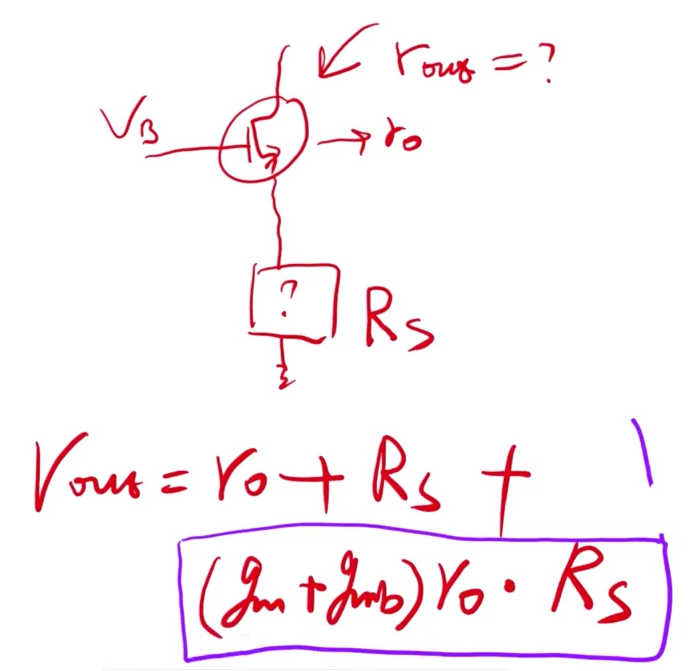 r_out = ?
V_B
→ r_o
?
R_S
r_out = r_o + R_S +
(g_m + g_mb) r_o · R_S